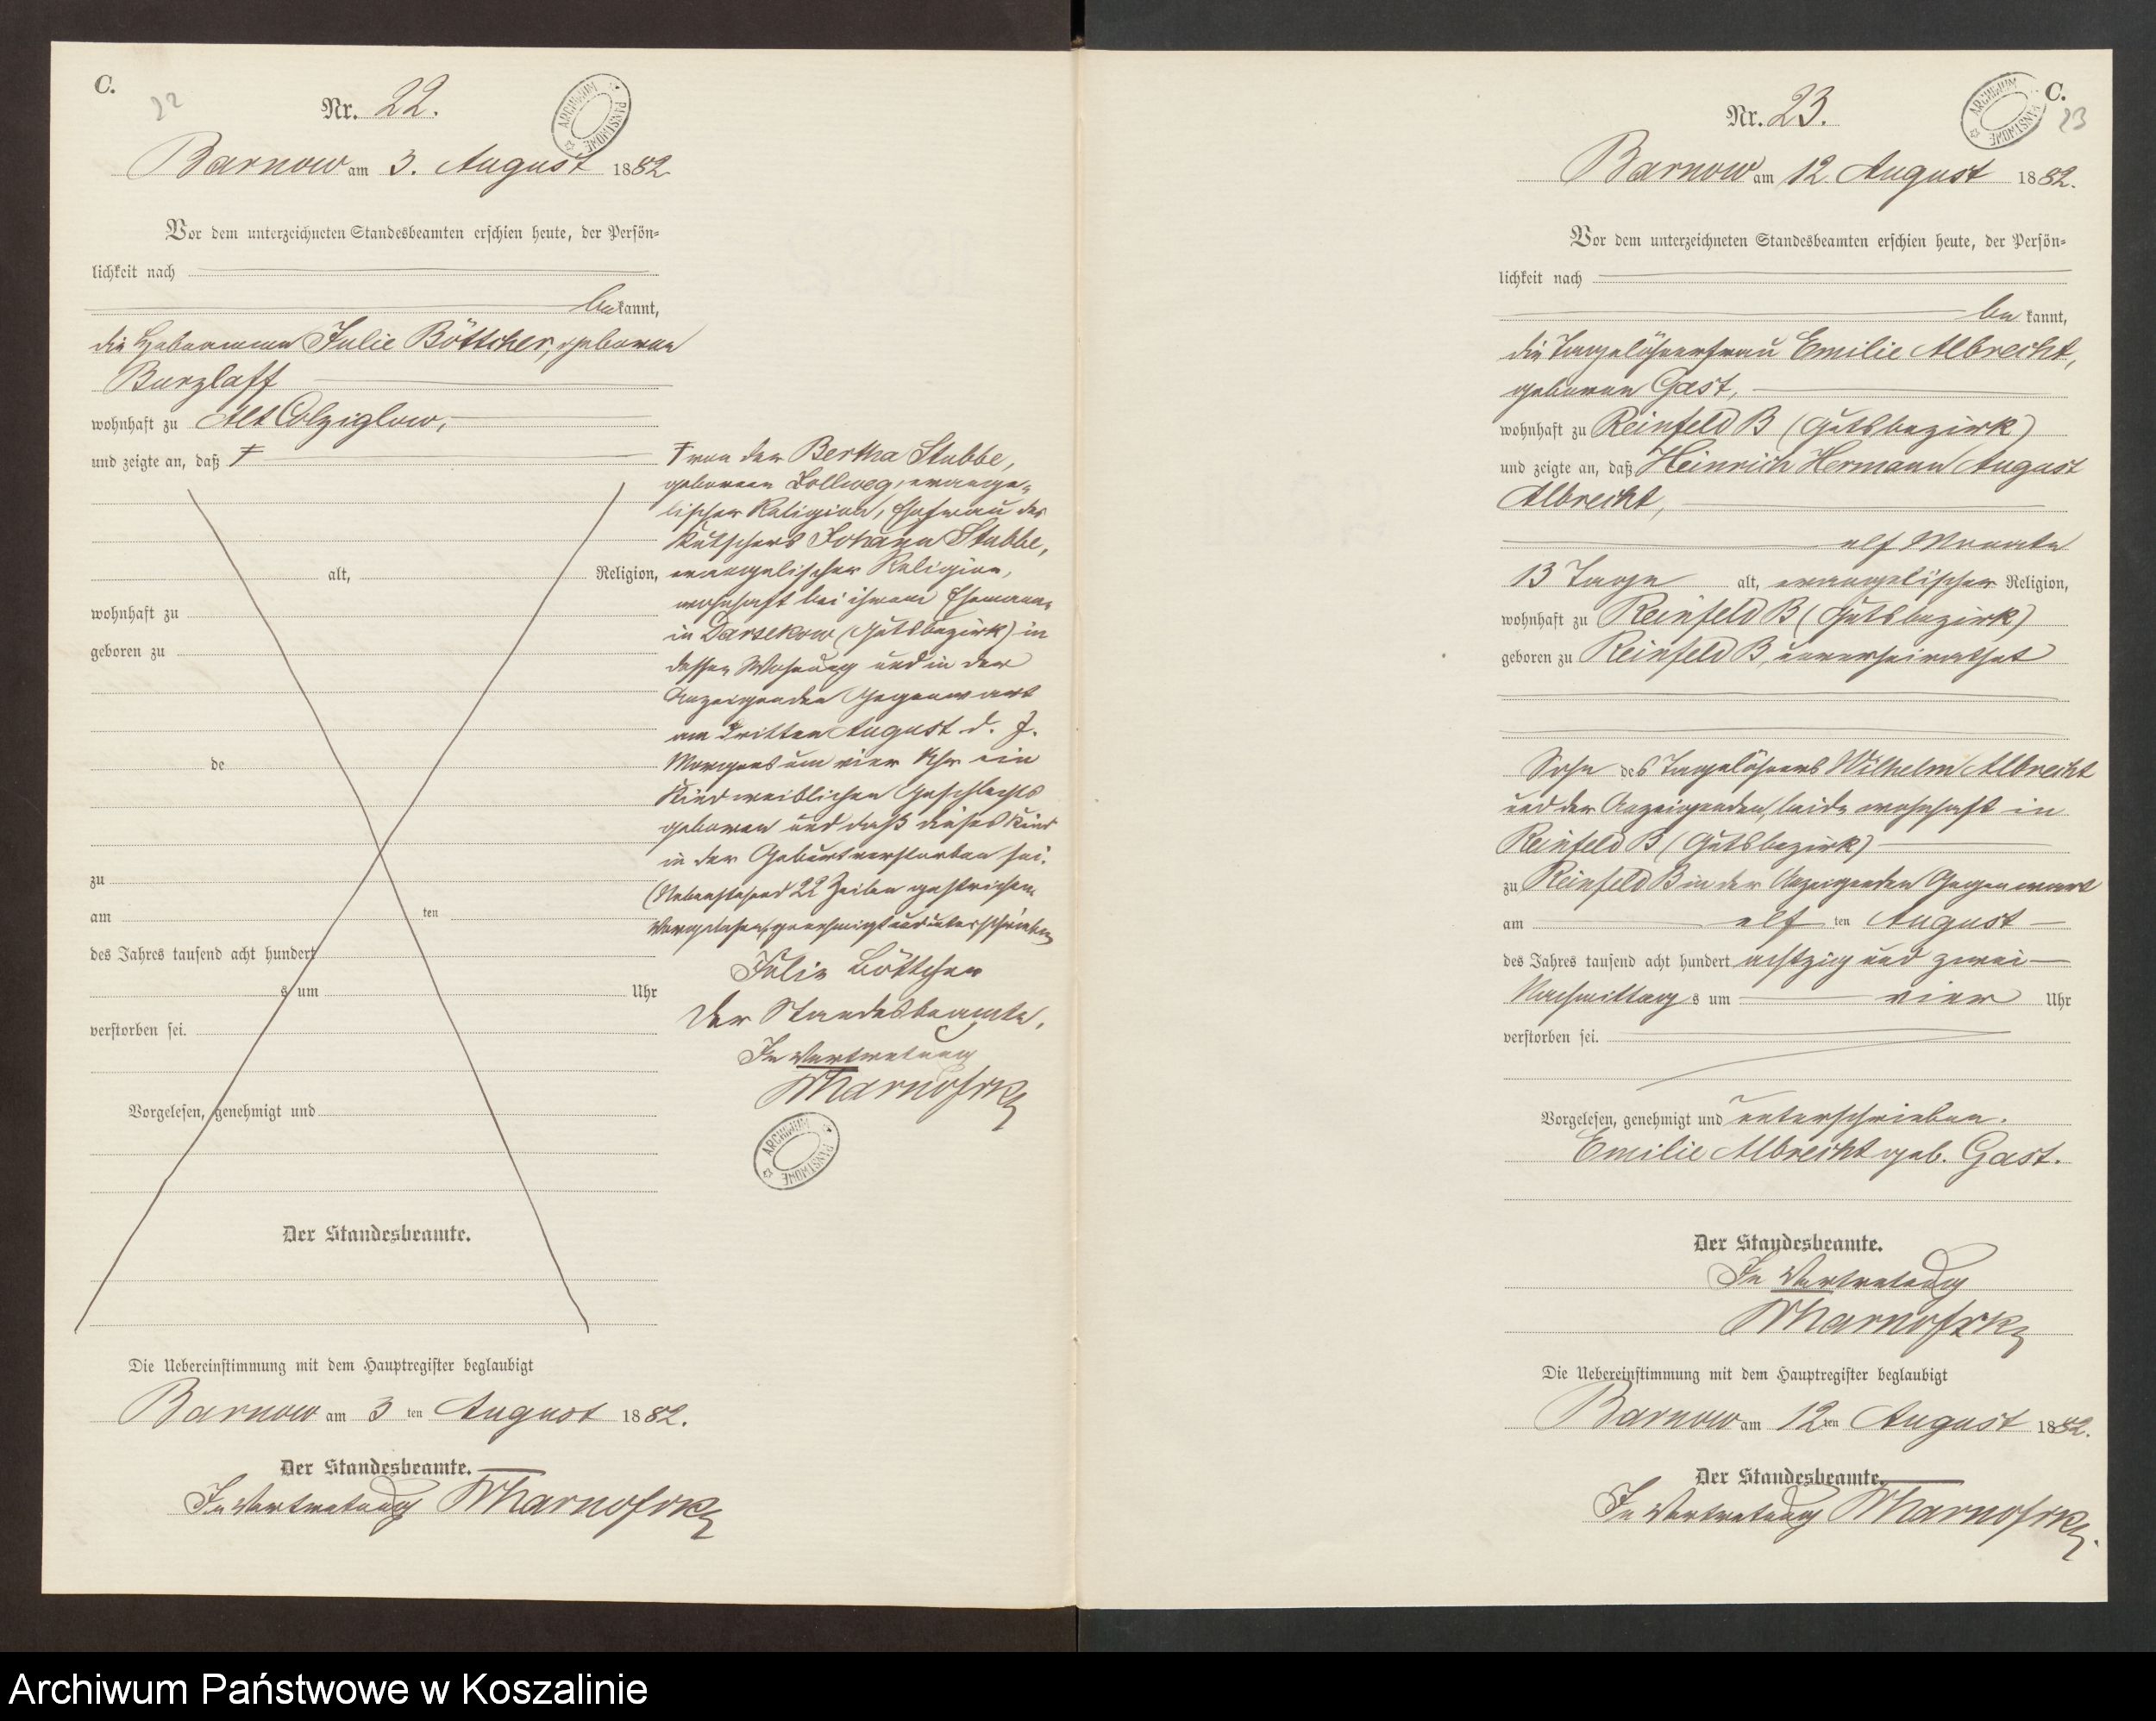 C.
22
Nr. 22.
ARCHIWUM PAŃSTWOWE
Barnow am 3. August 1882
Vor dem unterzeichneten Standesbeamten erschien heute, der Persön-
lichkeit nach
bekannt,
die Hebamme Julie Böttcher, geborene
Burzlaff
wohnhaft zu Alt Colziglow,
und zeigte an, daß ‡
alt, Religion,
wohnhaft zu
geboren zu
de
zu
am ten
des Jahres tausend acht hundert
s um Uhr
verstorben sei.
Vorgelesen, genehmigt und
Der Standesbeamte.
‡ von der Bertha Stubbe,
geborenen Zollweg, evange-
lischer Religion, Ehefrau des
Kutschers Johann Stubbe,
evangelischer Religion,
wohnhaft bei ihrem Ehemann
in Darsekow (Gutsbezirk) in
dessen Wohnung und in der
Anzeigenden Gegenwart
am dritten August d. J.
Morgens um vier Uhr ein
Kind weiblichen Geschlechts
geboren und daß dieses Kind
in der Geburt verstorben sei.
(Nebenstehend 22 Zeilen gestrichen.
Vorgelesen, genehmigt und unterschrieben
Julie Böttcher
Der Standesbeamte.
In Vertretung
ARCHIWUM PAŃSTWOWE
Die Uebereinstimmung mit dem Hauptregister beglaubigt
Barnow am 3 ten August 1882.
Der Standesbeamte.
In Vertretung
C.
23
Nr. 23.
ARCHIWUM PAŃSTWOWE
Barnow am 12. August 1882.
Vor dem unterzeichneten Standesbeamten erschien heute, der Persön-
lichkeit nach
bekannt,
die Tagelöhnerfrau Emilie Albrecht,
geborene Gast,
wohnhaft zu Reinfeld B (Gutsbezirk)
und zeigte an, daß Heinrich Hermann August
Albrecht,
elf Monate
13 Tage alt, evangelischer Religion,
wohnhaft zu Reinfeld B (Gutsbezirk)
geboren zu Reinfeld B, unverheirathet
Sohn des Tagelöhners Wilhelm Albrecht
und der Anzeigenden, beide wohnhaft in
Reinfeld B (Gutsbezirk)
zu Reinfeld B in der Anzeigenden Gegenwart
am elf ten August
des Jahres tausend acht hundert achtzig und zwei
Nachmittags um vier Uhr
verstorben sei.
Vorgelesen, genehmigt und unterschrieben.
Emilie Albrecht geb. Gast.
Der Standesbeamte.
In Vertretung
Die Uebereinstimmung mit dem Hauptregister beglaubigt
Barnow am 12 ten August 1882.
Der Standesbeamte.
In Vertretung
Archiwum Państwowe w Koszalinie